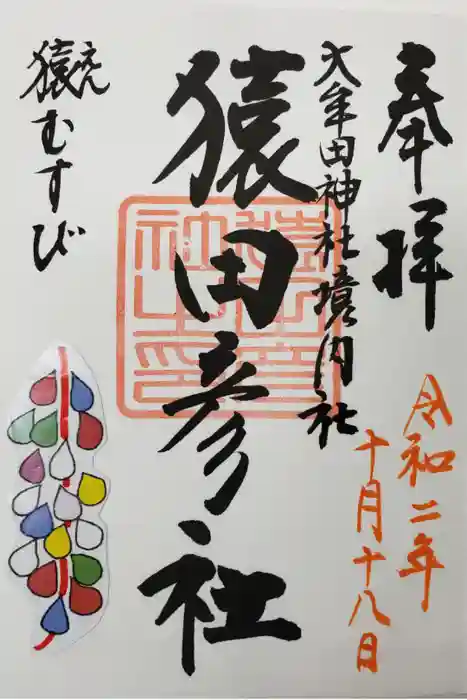 奉拝
令和二年
十月十八日
大牟田神社境内社
猿田彦社
猿むすび
えん